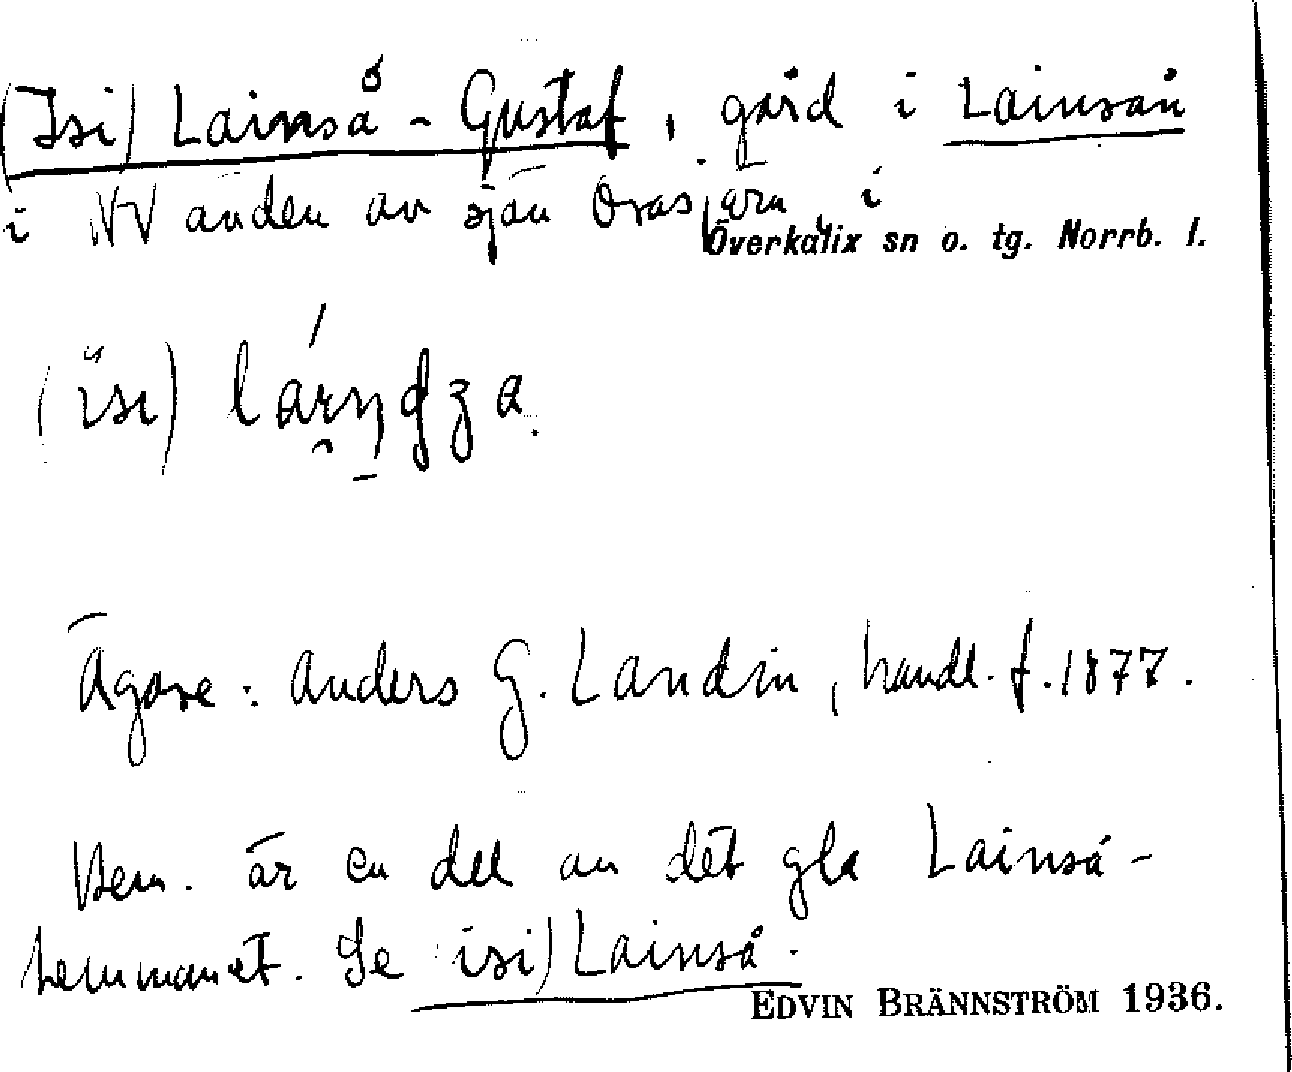 (Isi) Lainså - Gustaf, gård i Lainsån
i NV änden av sjön Orasjärv i
Överkalix sn o. tg. Norrb. l.
Ägare: Anders G. Landin, handl. f. 1877.
Hem. är en del av det gla Lainså-
hemmanet. Se isi) Lainså.
EDVIN BRÄNNSTRÖM 1936.